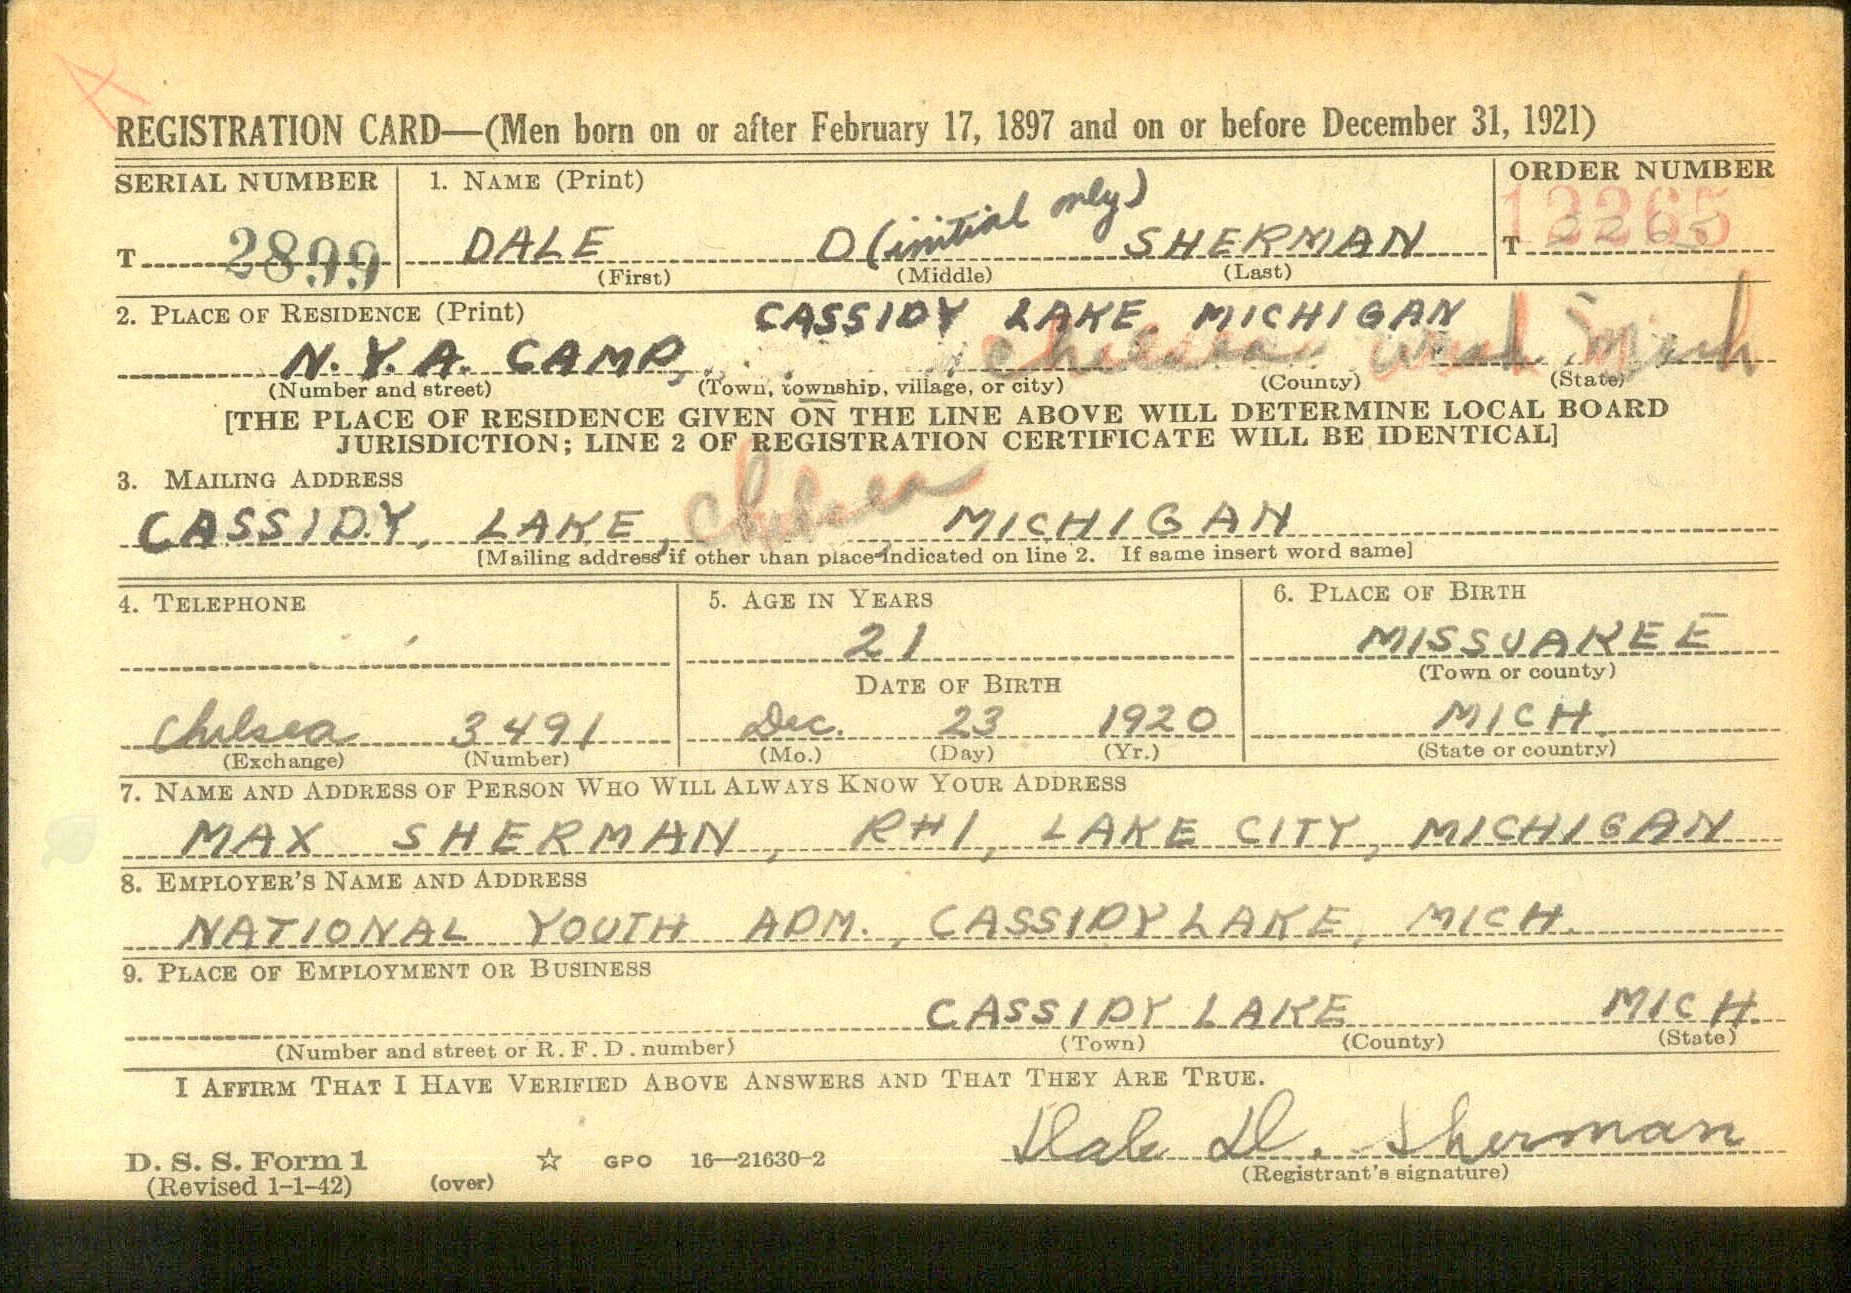 A
REGISTRATION CARD—(Men born on or after February 17, 1897 and on or before December 31, 1921)
SERIAL NUMBER 1. NAME (Print) ORDER NUMBER
T 2899 DALE D (initial only) SHERMAN T 12265
(First) (Middle) (Last)
2. PLACE OF RESIDENCE (Print) CASSIDY LAKE, MICHIGAN
N.Y.A. CAMP, Chelsea Wash Mich
(Number and street) (Town, township, village, or city) (County) (State)
[THE PLACE OF RESIDENCE GIVEN ON THE LINE ABOVE WILL DETERMINE LOCAL BOARD
JURISDICTION; LINE 2 OF REGISTRATION CERTIFICATE WILL BE IDENTICAL]
3. MAILING ADDRESS
CASSIDY, LAKE, Chelsea, MICHIGAN
[Mailing address if other than place indicated on line 2. If same insert word same]
4. TELEPHONE 5. AGE IN YEARS 6. PLACE OF BIRTH
21 MISSUAKEE
(Town or county)
DATE OF BIRTH
Chelsea 3491 Dec. 23 1920 MICH.
(Exchange) (Number) (Mo.) (Day) (Yr.) (State or country)
7. NAME AND ADDRESS OF PERSON WHO WILL ALWAYS KNOW YOUR ADDRESS
MAX SHERMAN, R#1, LAKE CITY, MICHIGAN
8. EMPLOYER'S NAME AND ADDRESS
NATIONAL YOUTH ADM., CASSIDY LAKE, MICH.
9. PLACE OF EMPLOYMENT OR BUSINESS
CASSIDY LAKE MICH.
(Number and street or R. F. D. number) (Town) (County) (State)
I AFFIRM THAT I HAVE VERIFIED ABOVE ANSWERS AND THAT THEY ARE TRUE.
Dale D. Sherman
(Registrant's signature)
D. S. S. Form 1
(Revised 1-1-42) (over) ☆ GPO 16—21630-2